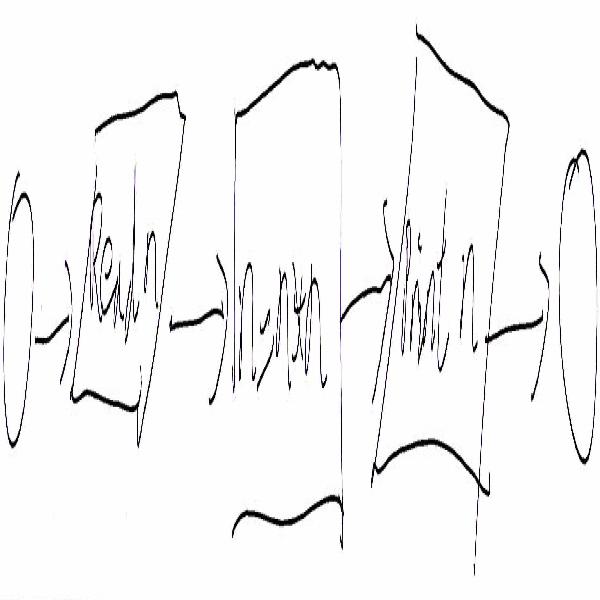 Read n
n=nxn
Print n